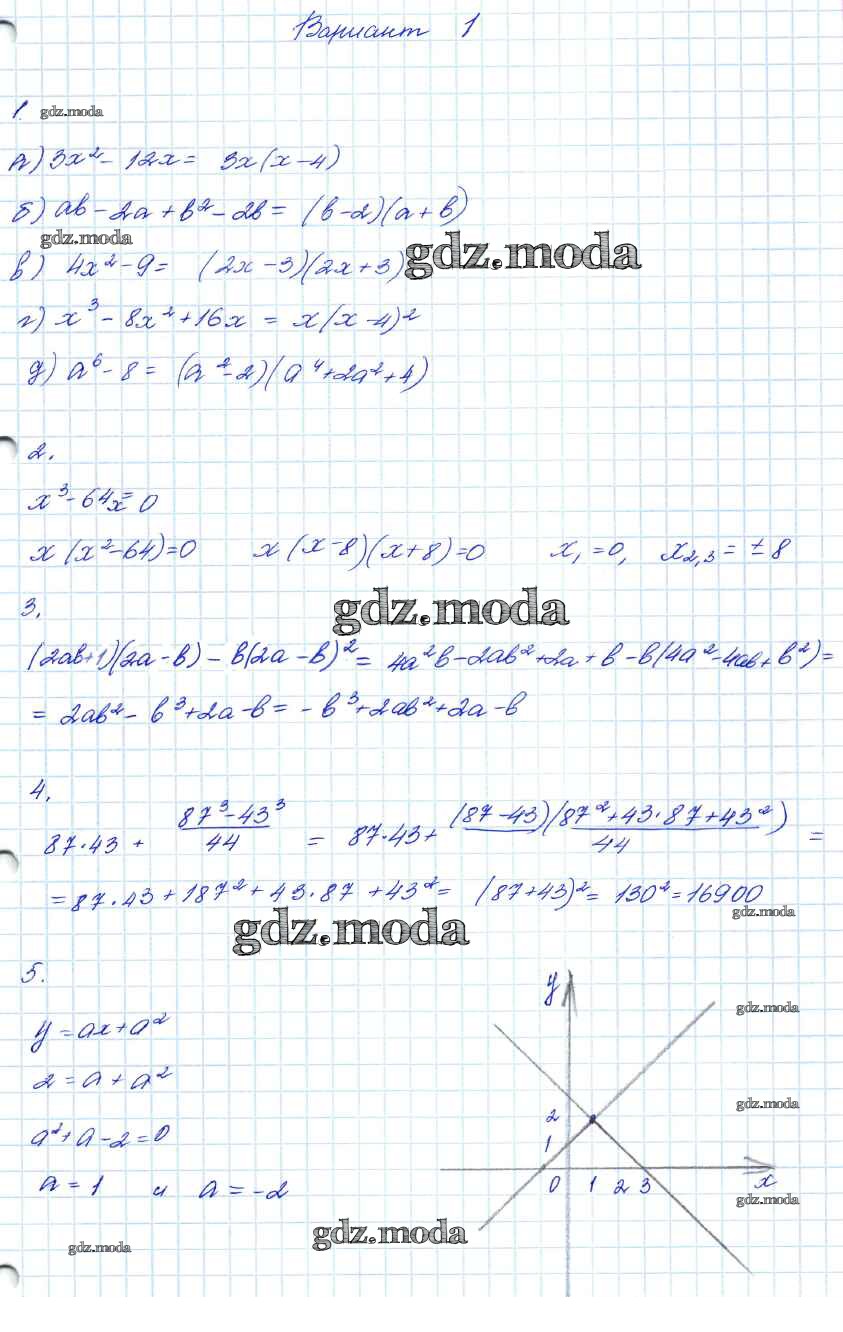 Вариант 1
1
gdz.moda
а) 3x² - 12x = 3x(x-4)
б) ab - 2a + b² - 2b = (b-2)(a+b)
gdz.moda
в) 4x² - 9 = (2x-3)(2x+3)
gdz.moda
г) x³ - 8x² + 16x = x(x-4)²
д) a⁶ - 8 = (a²-2)(a⁴+2a²+4)
2.
x³ - 64x = 0
x(x²-64)=0 x(x-8)(x+8)=0 x₁=0, x₂,₃ = ±8
3.
gdz.moda
(2ab+1)(2a-b) - b(2a-b)² = 4a²b - 2ab² + 2a + b - b(4a²-4ab+b²) =
= 2ab² - b³ + 2a - b = - b³ + 2ab² + 2a - b
4.
87·43 + (87³-43³)/44 = 87·43 + (87-43)(87²+43·87+43²)/44 =
= 87·43 + 187² + 43·87 + 43² = (87+43)² = 130² = 16900
gdz.moda
gdz.moda
5.
y
gdz.moda
y = ax + a²
2 = a + a²
gdz.moda
2
a² + a - 2 = 0
1
a = 1 и a = -2
0 1 2 3 x
gdz.moda
gdz.moda
gdz.moda